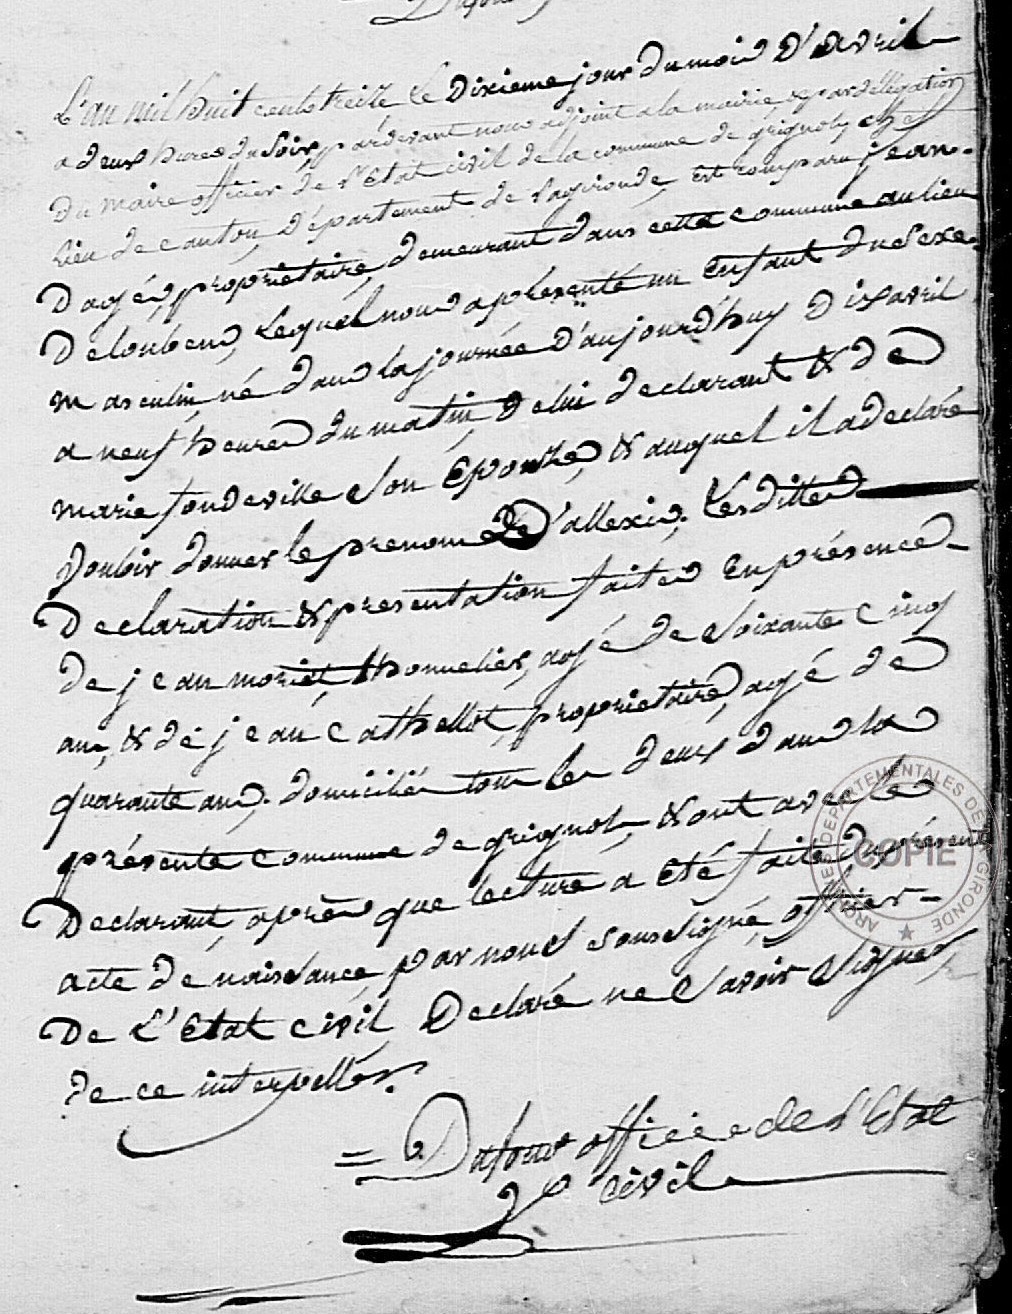 L'an mil huit cents treize le Dixieme jour du mois D'avril
a deux hures du soir, pardevant nous adjoint a la mairie & par dellegation
Du maire officier de l'Etat civil de la commune de grignols chef
lieu de canton, Département de la gironde, est comparu jean
Dagés, propriétaire, demeurant dans cette commune au lieu
De loubens, Lequel nous a présenté un Enfant du sexe
masculin, né dans la journée D'aujourd'huy Dix avril
a neuf heures du matin, De lui declarant & de
marie fondeville son Épouze, & auquel il a declaré
Vouloir donner le prenom De D'allexis. Lesdittes
Declaration & presentation faites En présence
de jean moriet, thonnelier, agé de soixante cinq
ans, & de jean cathellot, propriétaire, agé de
quarante ans. domiciliés tous les deux dans la
présente commune de grignols, & ont avec le
Declarant après que lecture a Eté faite, du présent
acte de naissance, par nous soussigné, officier
De L'Etat civil Declaré ne savoir signer
de ce interpellés.
Dafour officiee de l'Etat
civil
ARCHIVES DEPARTEMENTALES DE LA GIRONDE
COPIE